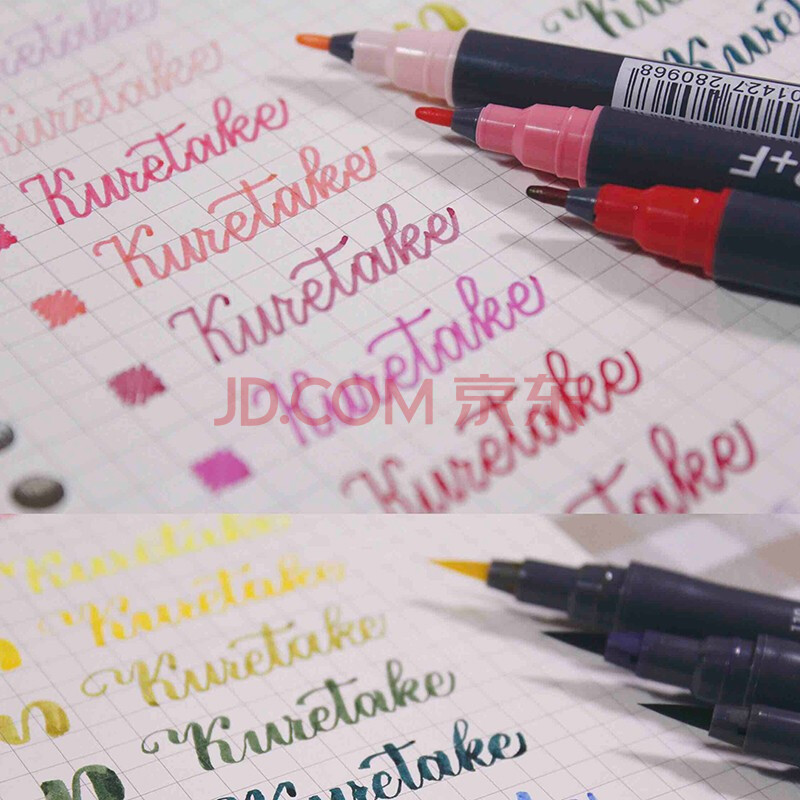 Kuretake
Kuretake
Kuretake
Kuretake
01427 280968
+F
Kuretake
Kuretake
Kuretake
Kuretake
Kuretake
JD.COM 京东
Kuretake
take
Kuretake
Kuretake
Kuretake
Kuretake
Kuretake